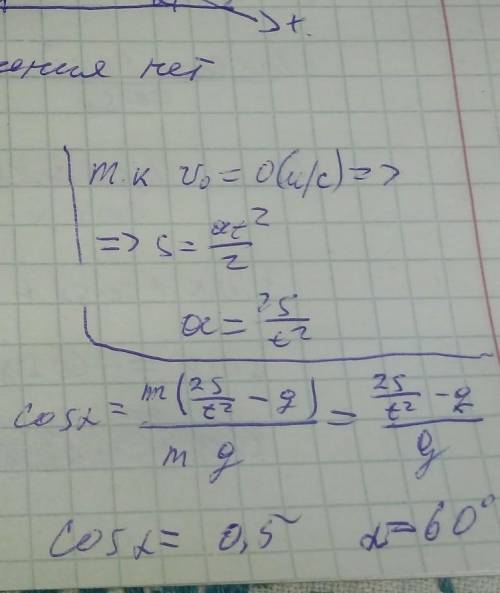 t.
нет
т.к v₀ = 0 (м/с) =>
=> s = at²/2
a = 2s/t²
cos α = m(2s/t² - g)/m g = (2s/t² - g)/g
cos α = 0,5 α = 60°